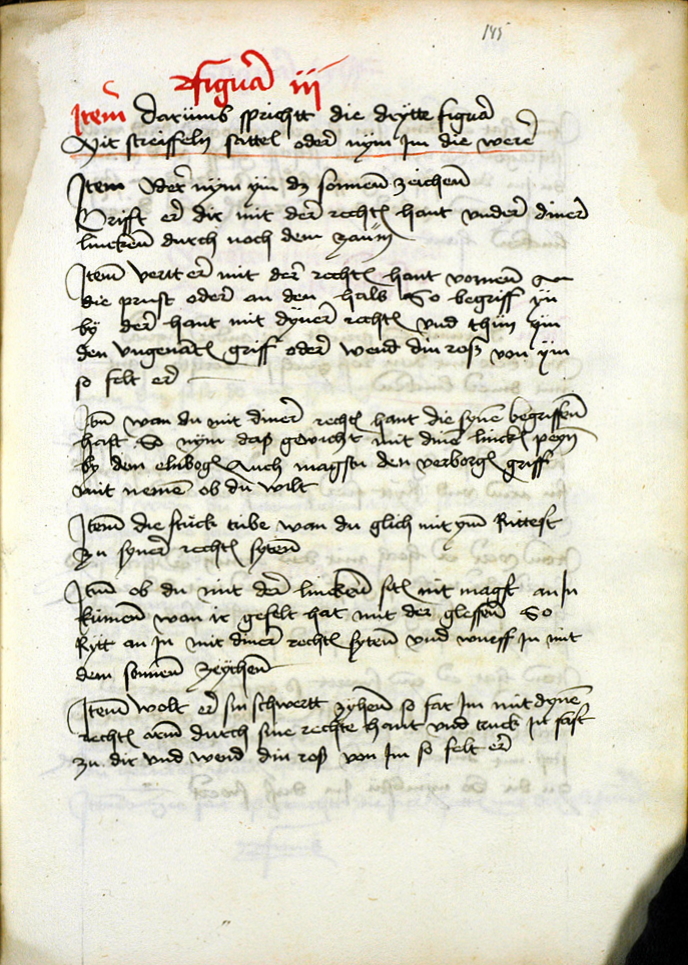 145
figura iii
Item Darumb sprichtt die drytte figura
Mit streiffeln sattel oder nym Im die were
Item Vert nym ym dz sonnen zeichen
Grifft er dir mit der rechtē hant vnder diner
lincken durch noch dem zaüm
Item vert er mit der rechtē hant vornen an
die prust oder an den hals So begriff yn
by der hant mit dyner rechtē vnd thün ym
den vngenantē griff oder wend din roß von ym
so felt er
Itm wan du mit diner rechtē hant die synē begriffen
hast So nym daß gewicht mit dinē linckē peyn
by dem elnbogē Auch magstu den verborgē griff
mit nemē ob du wilt
Item die stück tribe wan du glich mit ym Rittest
zu syner rechtē syten
Itm ob du mit der lincken sitē nit magst an In
kümen wan ir gefelt hat mit der gleffen So
Rytt an In mit diner rechtē syten vnd wurff In mit
dem sonnen zeychen
Item wolt er sin schwertt zyhen so far Im mit dynē
rechtē arm durch sine rechte hant vnd truck In fast
zu dir vnd wend din roß von Im so felt er